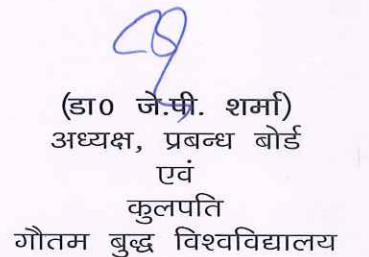 (डा0 जे.पी. शर्मा)
अध्यक्ष, प्रबन्ध बोर्ड
एवं
कुलपति
गौतम बुद्ध विश्वविद्यालय